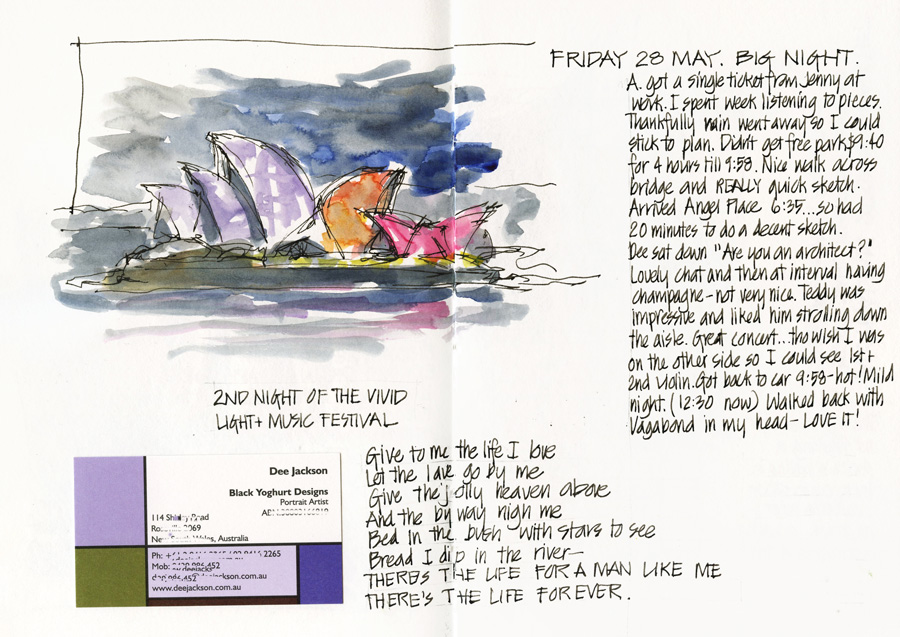 FRIDAY 28 MAY. BIG NIGHT.
A. got a single ticket from Jenny at
work. I spent week listening to pieces.
Thankfully rain went away so I could
stick to plan. Didn't get free park $9:40
for 4 hours till 9:58. Nice walk across
bridge and REALLY quick sketch.
Arrived Angel Place 6:35...so had
20 minutes to do a decent sketch.
Dee sat down "Are you an architect?"
Lovely chat and then at interval having
champagne - not very nice. Teddy was
impressive and liked him strolling down
the aisle. Great concert...tho wish I was
on the other side so I could see 1st +
2nd violin. Got back to car 9:58 - hot! Mild
night. (12:30 now) Walked back with
Vagabond in my head - LOVE IT!
2ND NIGHT OF THE VIVID
LIGHT + MUSIC FESTIVAL
Give to me the life I love
Let the lave go by me
Give the jolly heaven above
And the by way nigh me
Bed in the bush with stars to see
Bread I dip in the river—
THERE'S THE LIFE FOR A MAN LIKE ME
THERE'S THE LIFE FOR EVER.
Dee Jackson
Black Yoghurt Designs
Portrait Artist
114 Road
2069
Wales, Australia
Ph: 2265
Mob:
www.deejackson.com.au